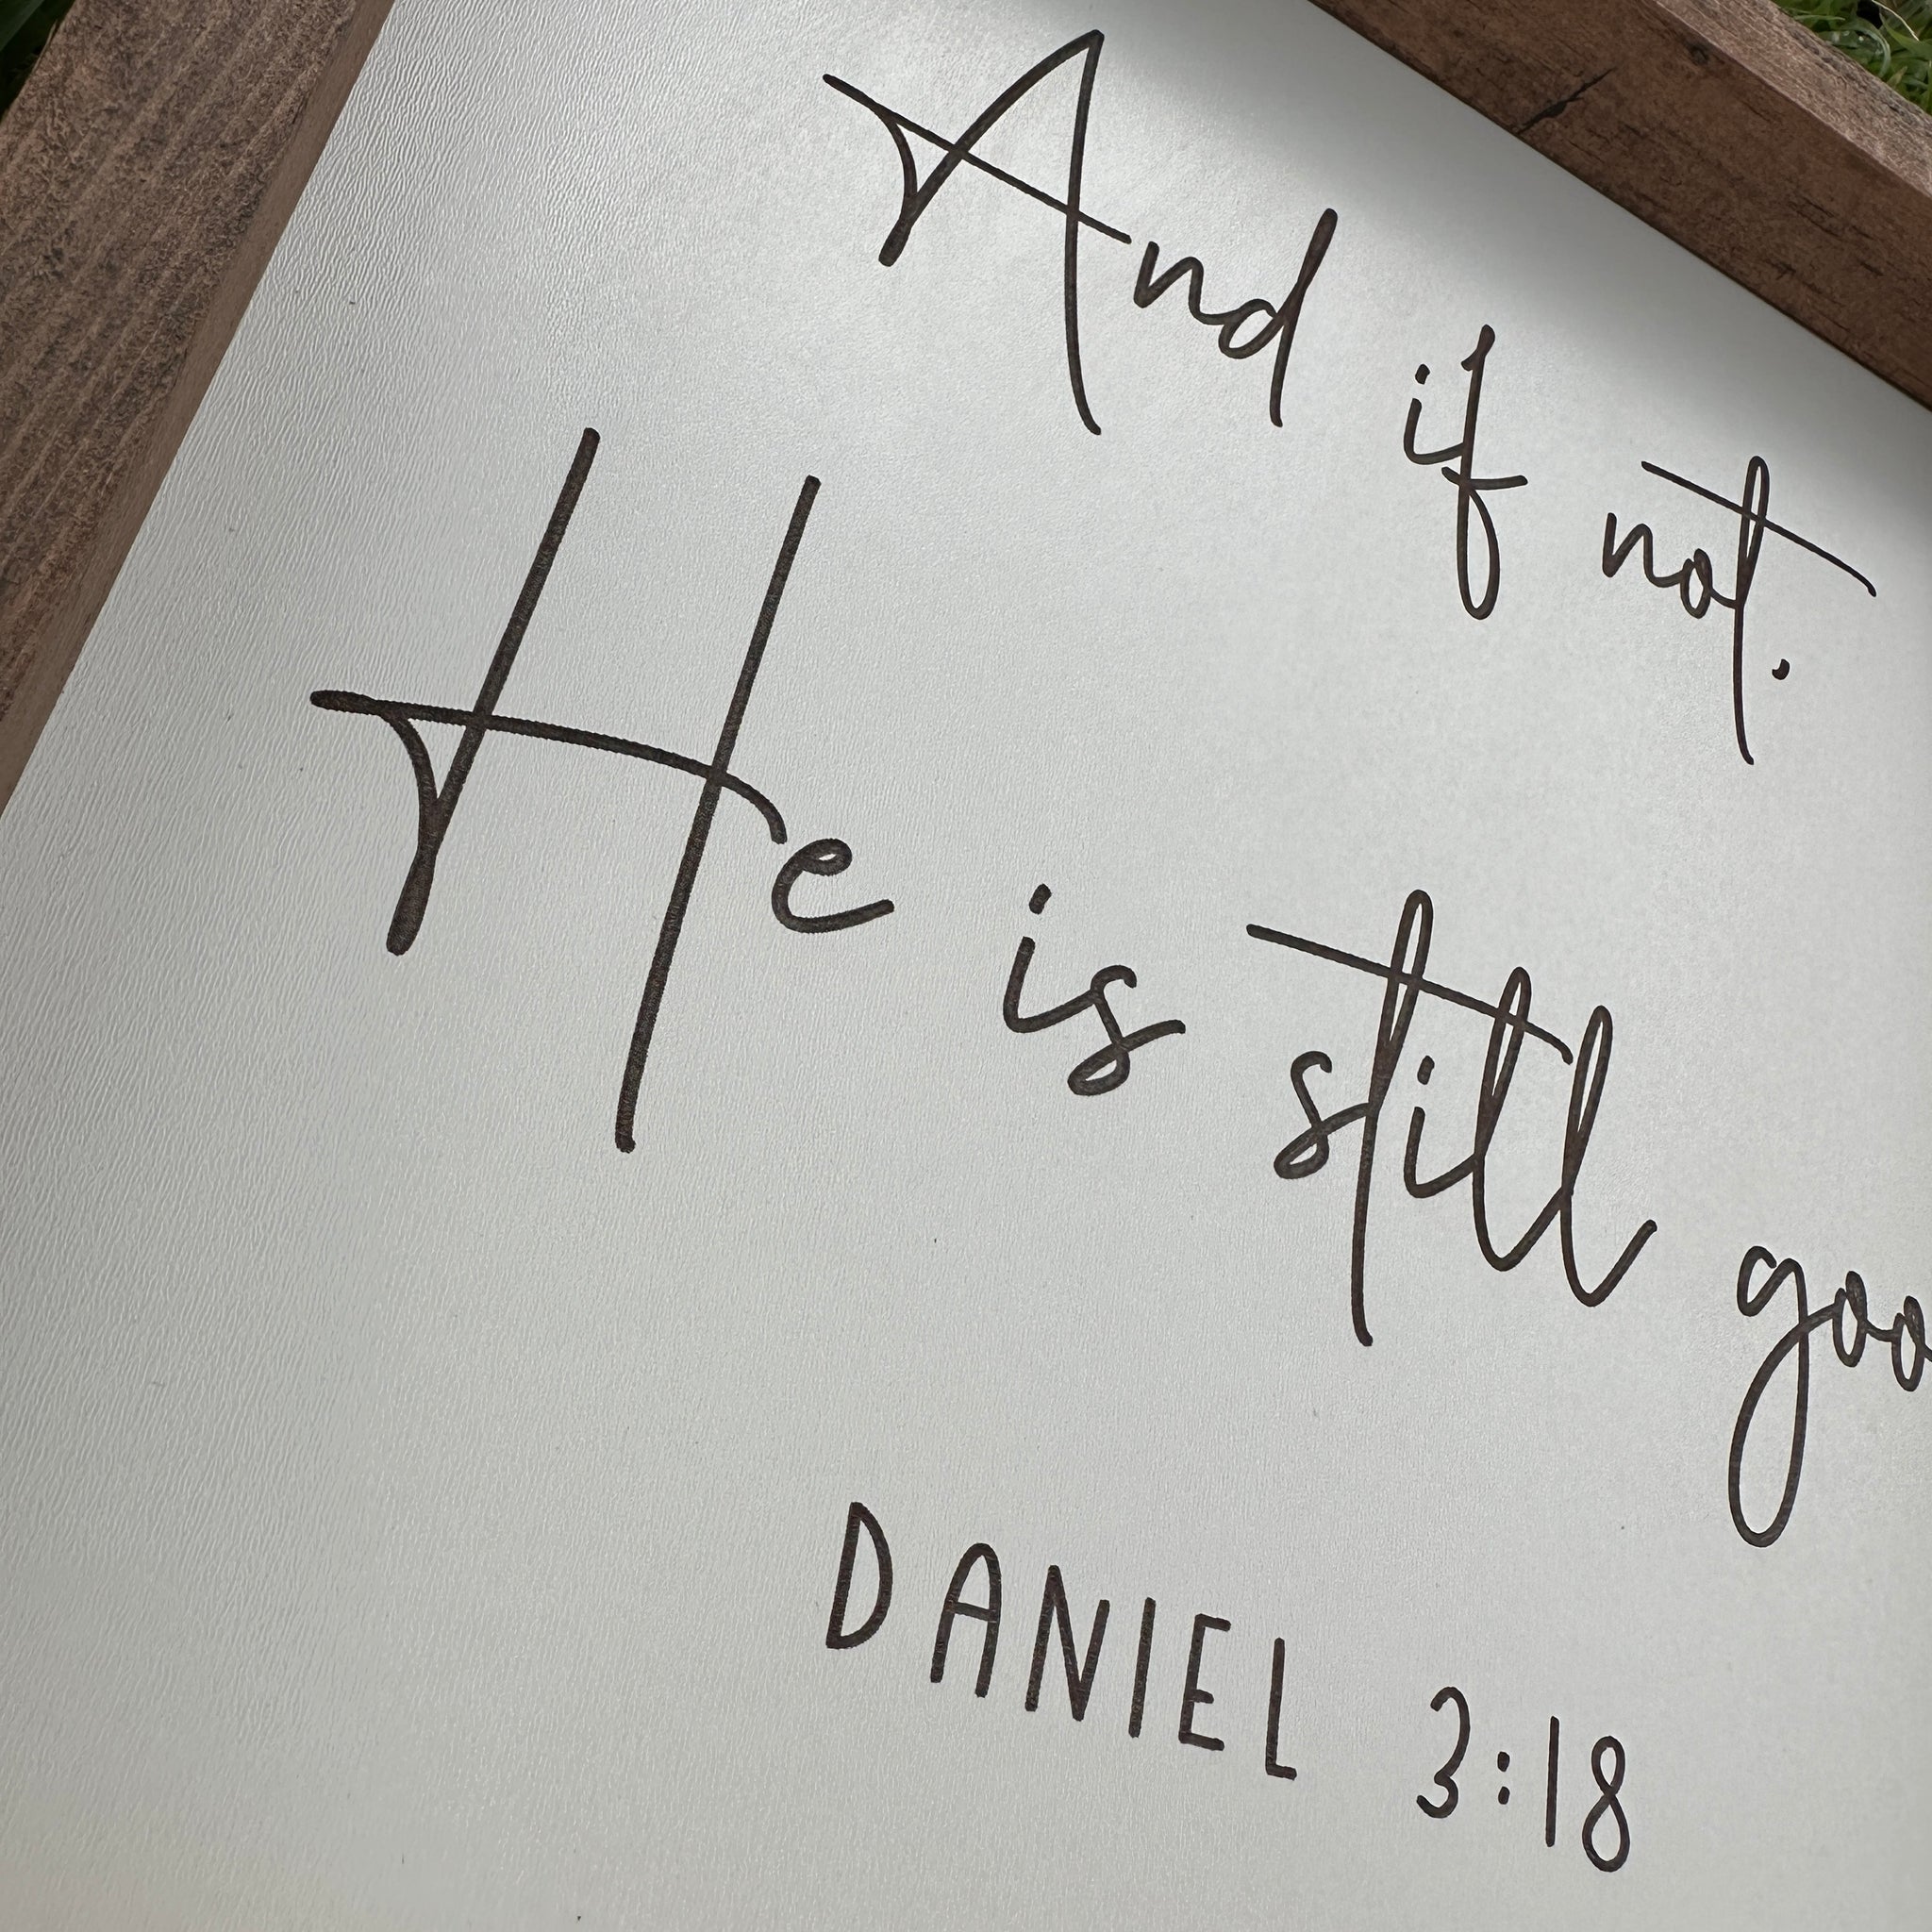 And if not.
He is still goo
DANIEL 3:18